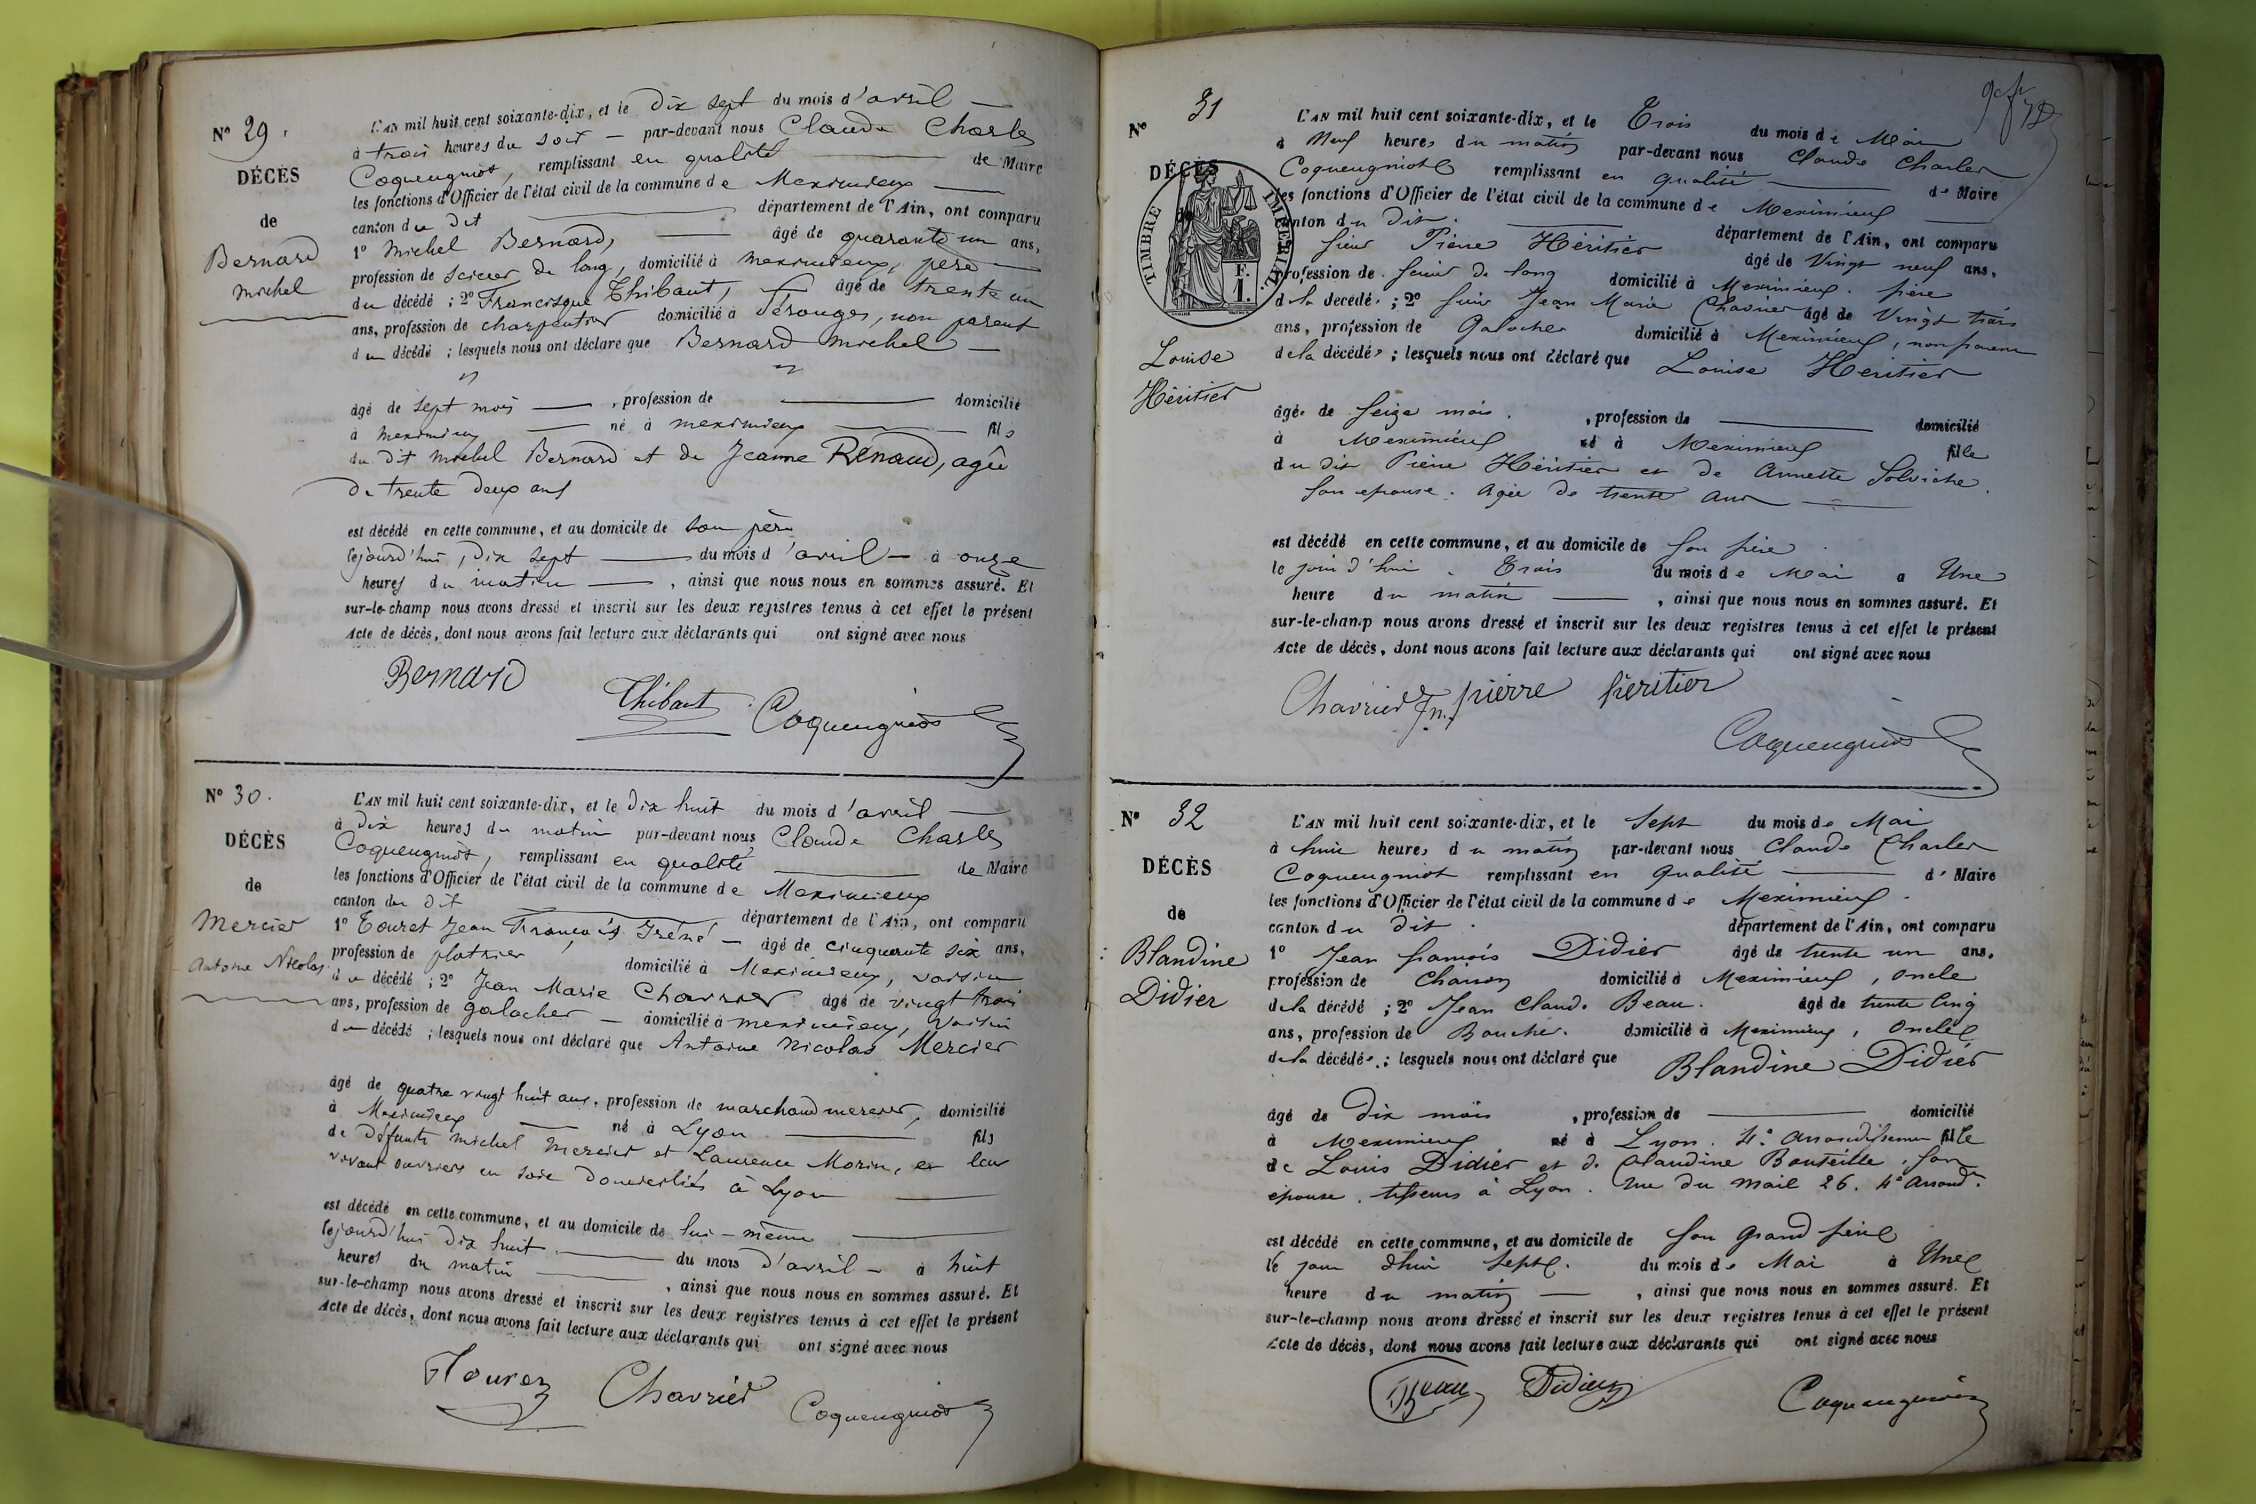 Nº 29.
DÉCÈS
de
Bernard
Michel
L'AN mil huit cent soixante-dix, et le dix sept du mois d'avril
à trois heures du soir par-devant nous Claude Charles
Coquengniot, remplissant en qualité de Maire
les fonctions d'Officier de l'état civil de la commune de Meximieux
canton du dit département de l'Ain, ont comparu
1º Michel Bernard, âgé de quarante un ans,
profession de scieur de long, domicilié à Meximieux, père
du décédé ; 2º Francisque Thibaut, âgé de trente un
ans, profession de charpentier domicilié à Pérouges, non parent
du décédé ; lesquels nous ont déclaré que Bernard Michel
âgé de sept mois, profession de domicilié
à Meximieux né à Meximieux fils
du dit Michel Bernard et de Jeanne Rénaud, agée
de trente deux ans
est décédé en cette commune, et au domicile de son père
lejourd'hui, dix sept du mois d'avril à onze
heures du matin, ainsi que nous nous en sommes assuré. Et
sur-le-champ nous avons dressé et inscrit sur les deux registres tenus à cet effet le présent
Acte de décès, dont nous avons fait lecture aux déclarants qui ont signé avec nous
Bernard
Thibaut Coquengniot
Nº 30.
DÉCÈS
de
Mercier
Antoine Nicolas
L'AN mil huit cent soixante-dix, et le dix huit du mois d'avril
à dix heures du matin par-devant nous Claude Charles
Coquengniot, remplissant en qualité de Maire
les fonctions d'Officier de l'état civil de la commune de Meximieux
canton du dit département de l'Ain, ont comparu
1º Touret Jean François Iréné âgé de cinquante six ans,
profession de platrier, domicilié à Meximieux, voisin
du décédé ; 2º Jean Marie Chavrier âgé de vingt trois
ans, profession de galocher domicilié à Meximieux, voisin
du décédé ; lesquels nous ont déclaré que Antoine Nicolas Mercier
âgé de quatre vingt huit ans, profession de marchand mercier, domicilié
à Meximieux né à Lyon fils
de défunts Michel Mercier et Laurence Morin, en leur
vivant ouvriers en soie domiciliés à Lyon
est décédé en cette commune, et au domicile de lui-même
lejourd'hui dix huit du mois d'avril à huit
heures du matin, ainsi que nous nous en sommes assuré. Et
sur-le-champ nous avons dressé et inscrit sur les deux registres tenus à cet effet le présent
Acte de décès, dont nous avons fait lecture aux déclarants qui ont signé avec nous
Chavrier Coquengniot
Nº 31
DÉCÈS
de
TIMBRE IMPÉRIAL
F. I.
Louise
Héritier
L'AN mil huit cent soixante-dix, et le Trois du mois de Mai
à Neuf heures du matin par-devant nous Claude Charles
Coquengniot remplissant en qualité de Maire
les fonctions d'Officier de l'état civil de la commune de Meximieux
canton du dit. département de l'Ain, ont comparu
sieur Pierre Héritier âgé de Vingt neuf ans,
profession de scieur de long domicilié à Meximieux. père
de la décédée ; 2º sieur Jean Marie Chavrier âgé de Vingt trois
ans, profession de Galocher domicilié à Meximieux, non parent
de la décédée ; lesquels nous ont déclaré que Louise Héritier
âgée de seize mois, profession de domicilié
à Meximieux né à Meximieux fille
du dit Pierre Héritier et de Annette
son epouse. agée de trente ans
est décédé en cette commune, et au domicile de son père
le jour d'hui. Trois du mois de Mai a Une
heure du matin, ainsi que nous nous en sommes assuré. Et
sur-le-champ nous avons dressé et inscrit sur les deux registres tenus à cet effet le présent
Acte de décès, dont nous avons fait lecture aux déclarants qui ont signé avec nous
Chavrier Jn. pierre heritier
Coquengniot
Nº 32
DÉCÈS
de
Blandine
Didier
L'AN mil huit cent soixante-dix, et le Sept du mois de Mai
à huit heures du matin par-devant nous Claude Charles
Coquengniot remplissant en Qualité de Maire
les fonctions d'Officier de l'état civil de la commune de Meximieux.
canton du dit. département de l'Ain, ont comparu
1º Jean francois Didier âgé de trente un ans,
profession de Charron domicilié à Meximieux, oncle
de la décédé ; 2º Jean Claude Beau. âgé de trente cinq
ans, profession de Boucher. domicilié à Meximieux, Oncle
de la décédée ; lesquels nous ont déclaré que Blandine Didier
âgé de Dix mois, profession de domicilié
à Meximieux né à Lyon. 4e arrondissement fille
de Louis Didier et de Claudine Bouteille, son
épouse. tisseurs à Lyon. Rue du Mail 26. 4e arrond.
est décédé en cette commune, et au domicile de son Grand père
le jour d'hui Sept. du mois de Mai à Une
heure du matin, ainsi que nous nous en sommes assuré. Et
sur-le-champ nous avons dressé et inscrit sur les deux registres tenus à cet effet le présent
Acte de décès, dont nous avons fait lecture aux déclarants qui ont signé avec nous
Beau Didier Coquengniot